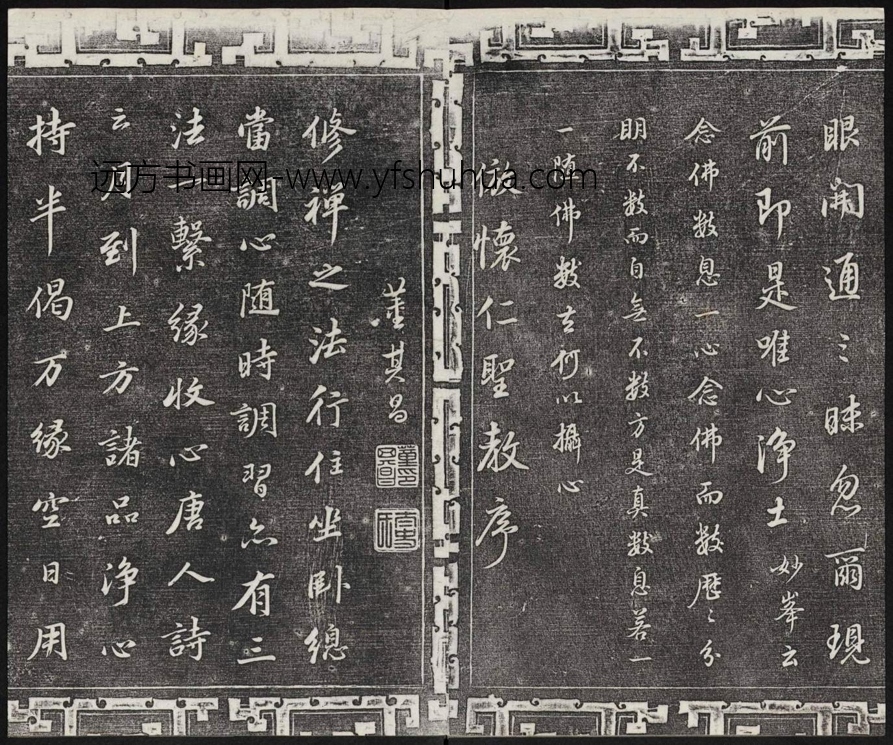 眼開通〻昧忽爾現
前即是唯心浄土妙峯云
念佛數息一心念佛而數歷〻分
明不數而自無不數方是真數息若一
一随佛數去何以攝心
倣懷仁聖教序
董其昌
修禅之法行住坐卧總
當調心随時調習亦有三
法一繫緣收心唐人詩
云月到上方諸品浄心
持半偈万緣空日用
远方书画网-www.yfshuhua.com